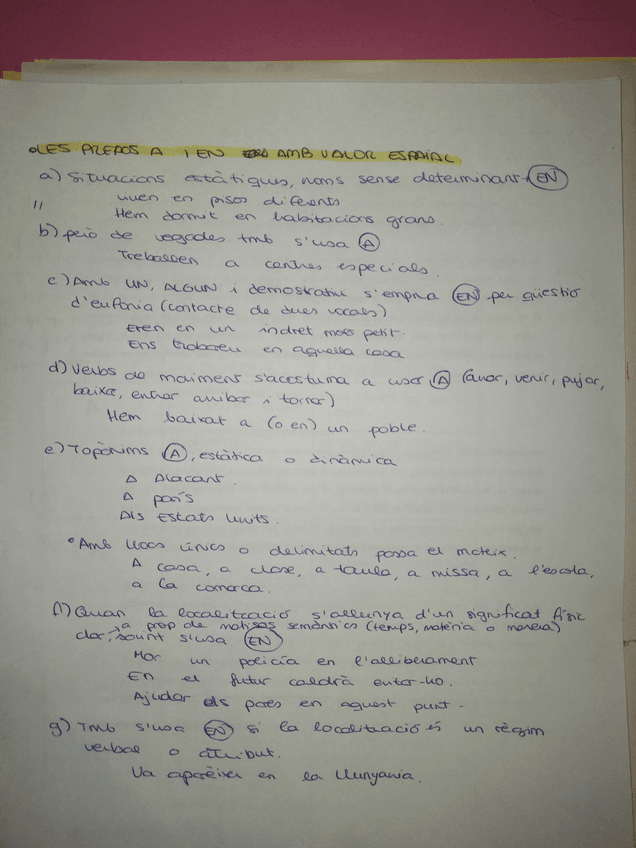 •LES PREPOS A I EN AMB VALOR ESPAIAL
a) Situacions estàtiques, noms sense determinant→ EN
viuen en pisos diferents
Hem dormit en habitacions grans.
b) però de vegades tmb s'usa A
Treballen a centres especials.
c) Amb UN, ALGUN i demostratiu s'empra EN per qüestió
d'eufonia (contacte de dues vocals)
Eren en un indret més petit.
Ens trobareu en aquella casa
d) Verbs de moviment s'acostuma a usar A (anar, venir, pujar,
baixar, entrar arribar i tornar)
Hem baixat a (o en) un poble.
e) Topònims A, estàtica o dinàmica
A Alacant.
A parís
Als Estats Units.
•Amb llocs únics o delimitats passa el mateix.
A casa, a classe, a taula, a missa, a l'escola,
a la comarca.
f) Quan la localització s'allunya d'un significat físic
→ a prop de matisos semàntics (temps, matèria o manera)
clar, sovint s'usa EN
Mor un policía en l'alliberament
En el futur caldrà evitar-ho.
Ajudar els pares en aquest punt.
g) Tmb s'usa EN si la localització és un règim
verbal o atribut.
Va aparèixer en la llunyania.